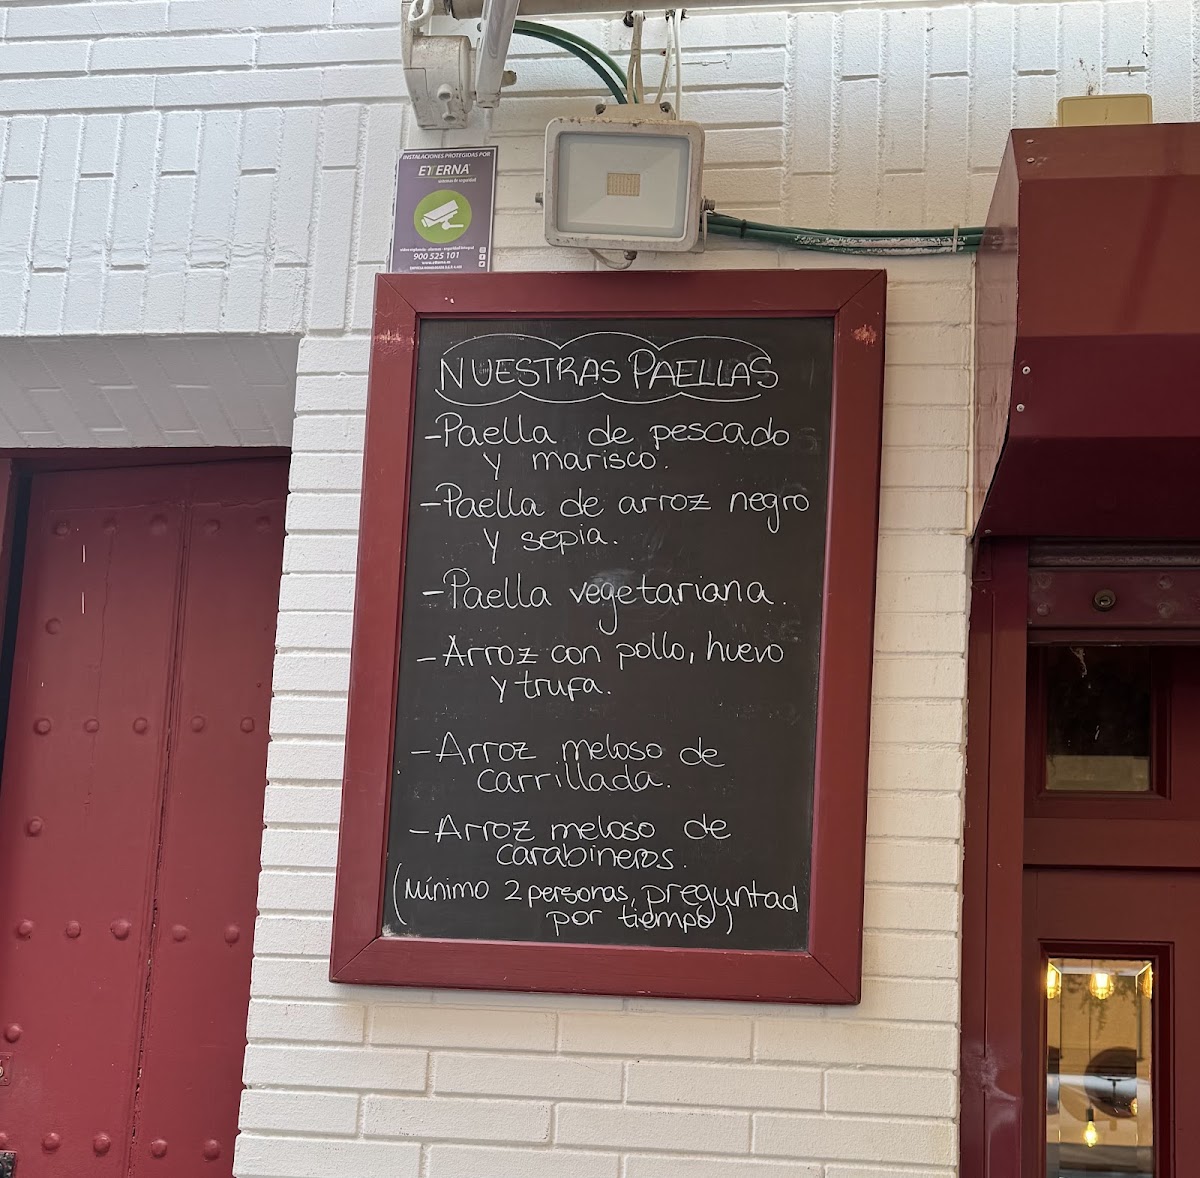 INSTALACIONES PROTEGIDAS POR
ETERNA
sistemas de seguridad
900 525 101
NUESTRAS PAELLAS
-Paella de pescado
y marisco.
-Paella de arroz negro
y sepia.
-Paella vegetariana.
-Arroz con pollo, huevo
y trufa.
-Arroz meloso de
carrillada.
-Arroz meloso de
carabineros.
(Mínimo 2 personas, preguntad
por tiempo)